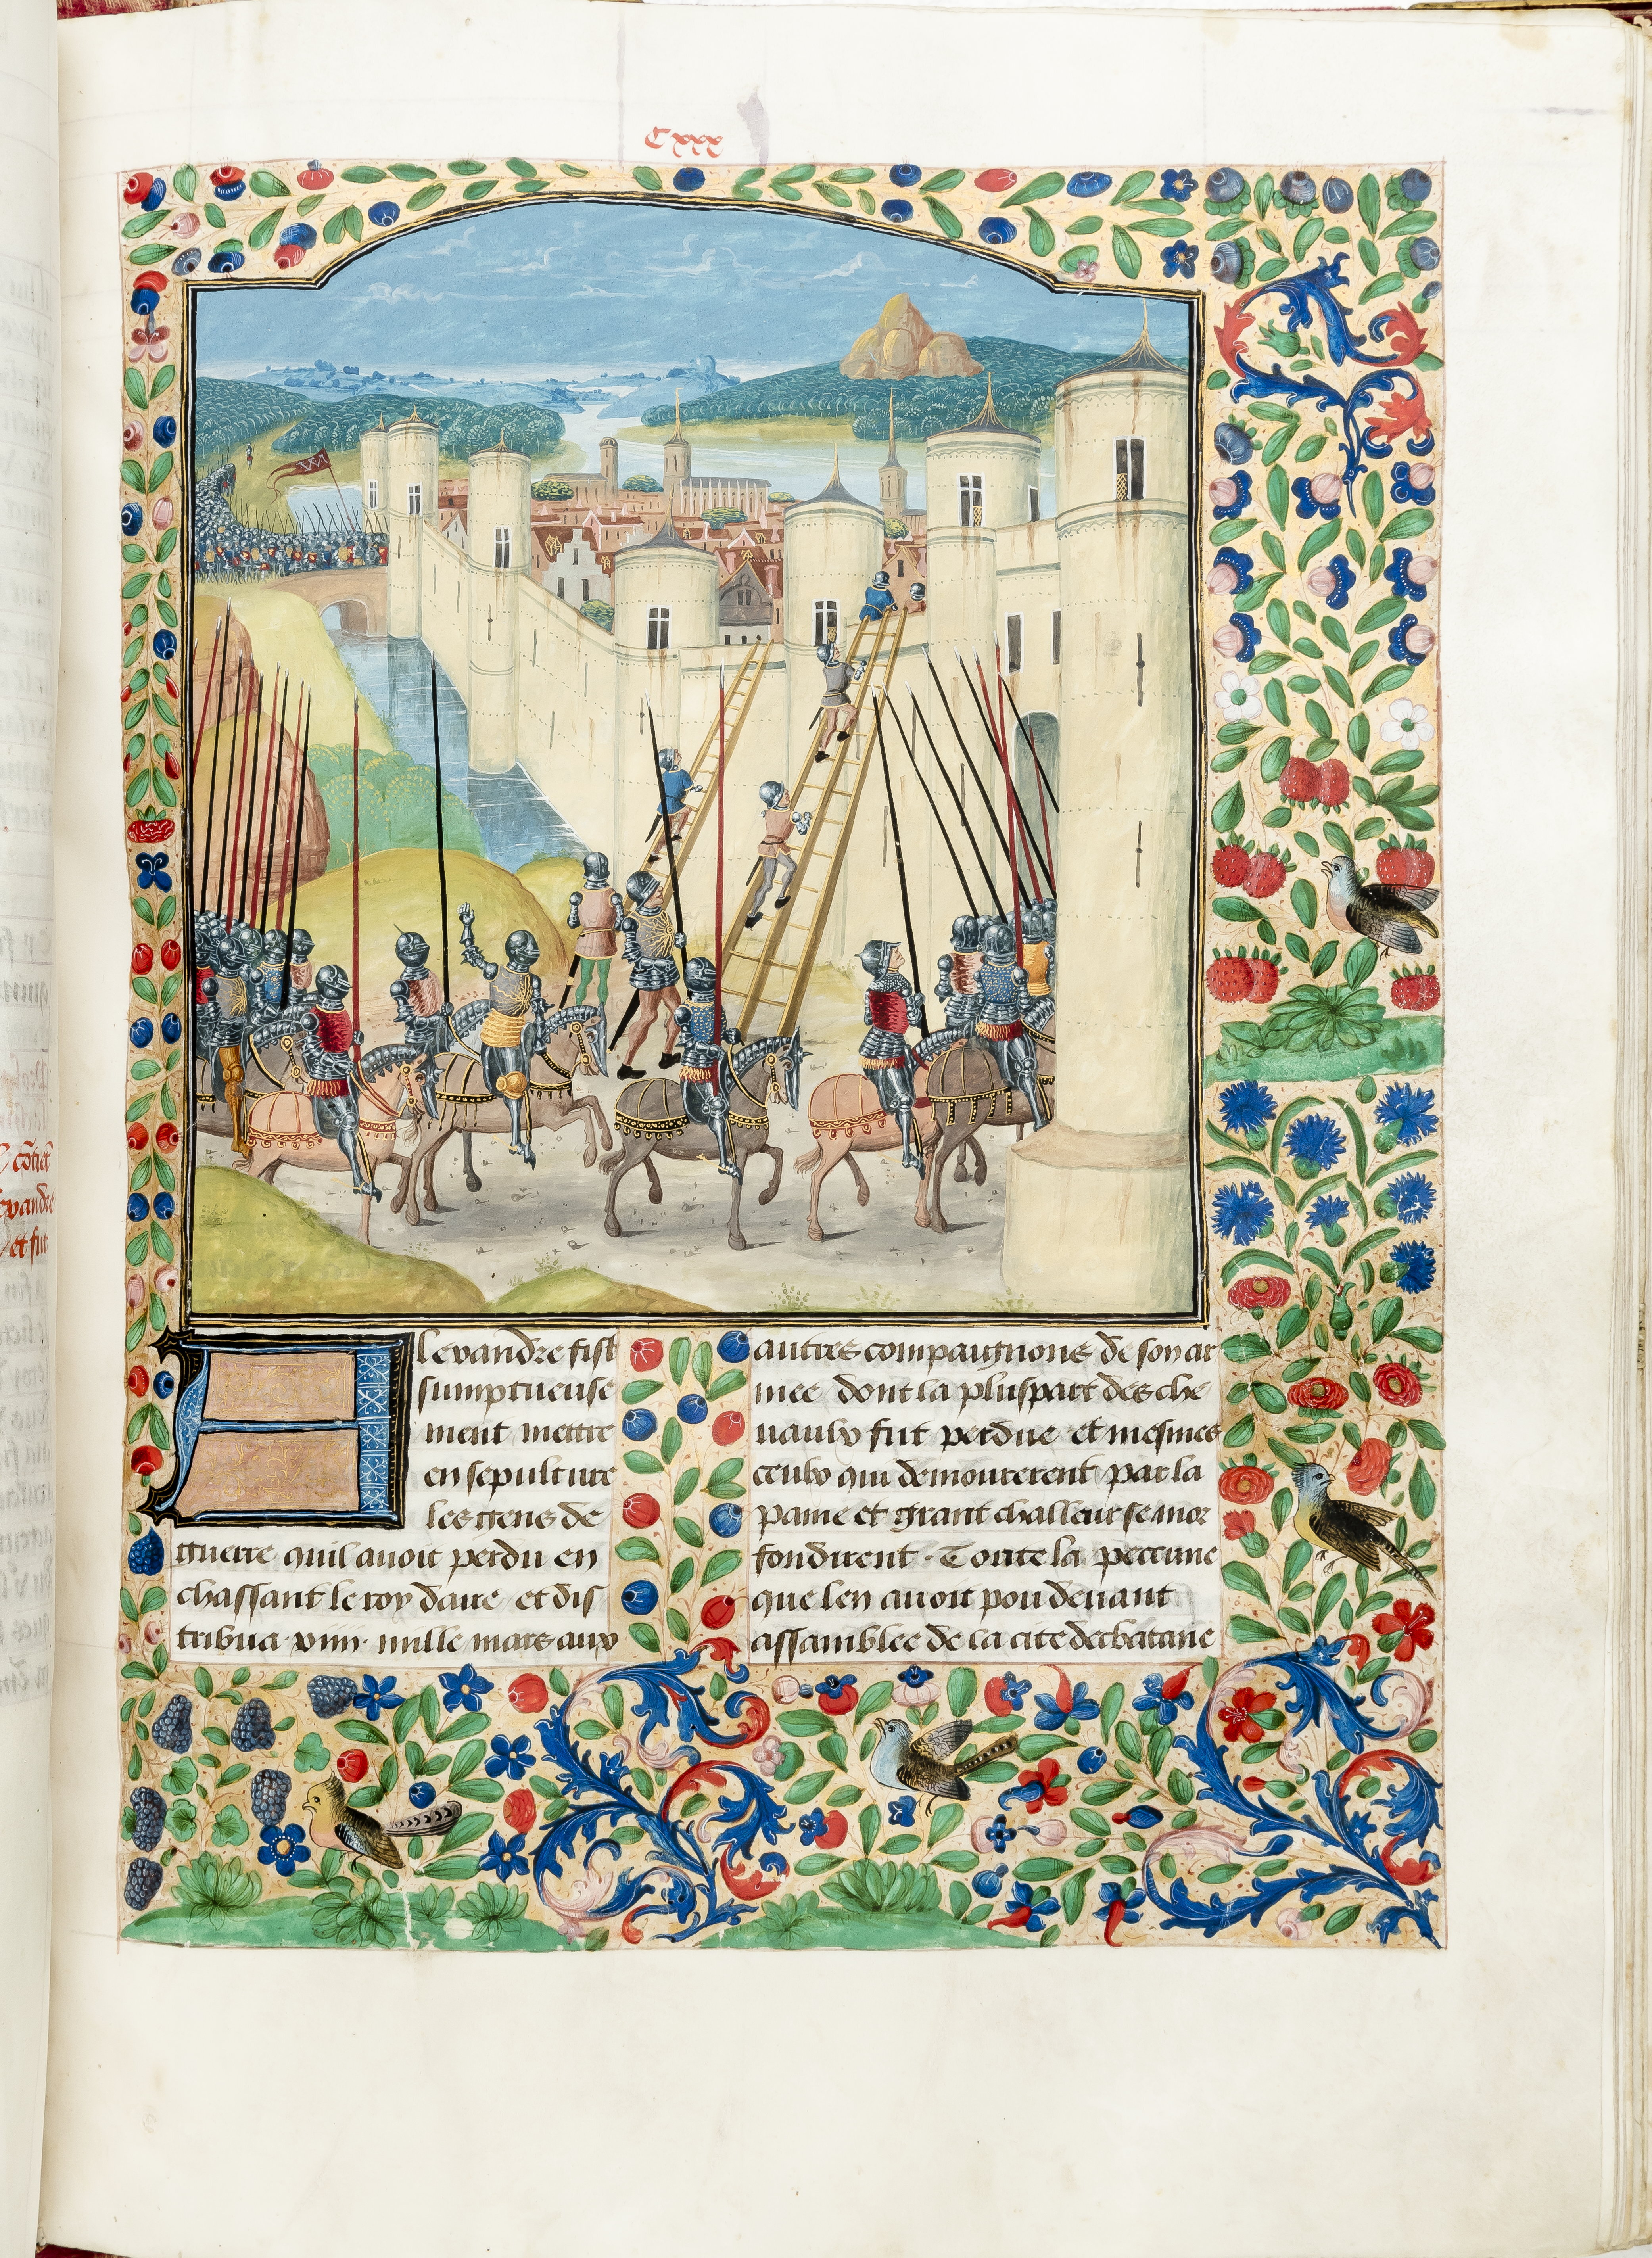 Cxxx
Alexandre fist
sumptueuse
ment mettre
en sepulture
les gens de
guerre quil avoit perdu en
chassant le roy daire et dis
tribua .xiiii. mille mars aux
autres compaignons de son ar
mee dont la pluspart des che
uaulx fut perdue et mesmes
ceulx qui demourerent par la
paine et grant challeur se mor
fondirent. Toute la peccune
que len auoit pou deuant
assamblee de la cite dechatane
evandre
et fut